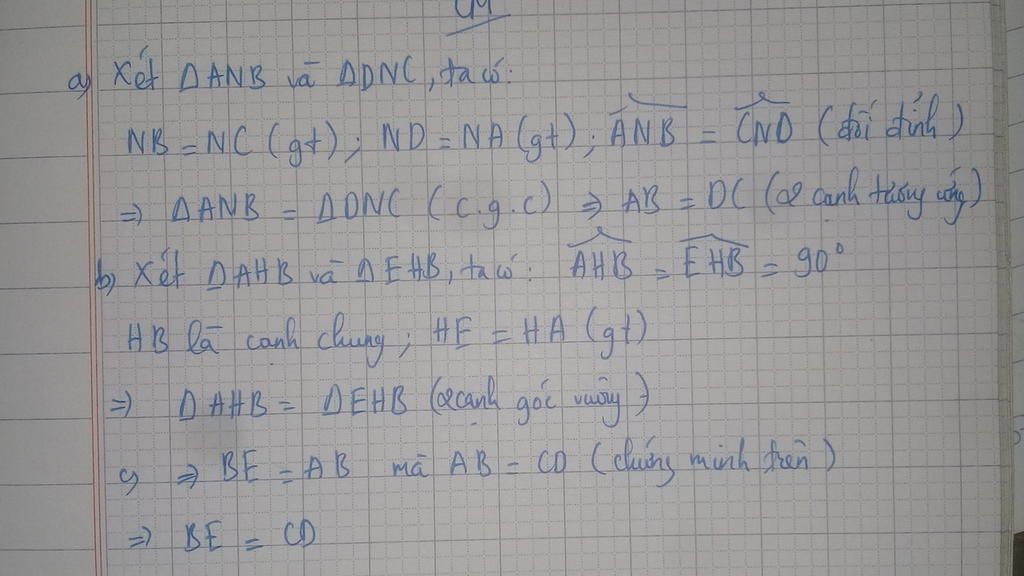 CM
a) Xét ΔANB và ΔDNC, ta có:
NB = NC (gt); ND = NA (gt); ANB = CND (đối đỉnh)
⇒ ΔANB = ΔDNC (c.g.c) ⇒ AB = DC (2 cạnh tương ứng)
b) Xét ΔAHB và ΔEHB, ta có: AHB = EHB = 90°
HB là cạnh chung; HE = HA (gt)
⇒ ΔAHB = ΔEHB (2 cạnh góc vuông)
c) ⇒ BE = AB mà AB = CD (chứng minh trên)
⇒ BE = CD